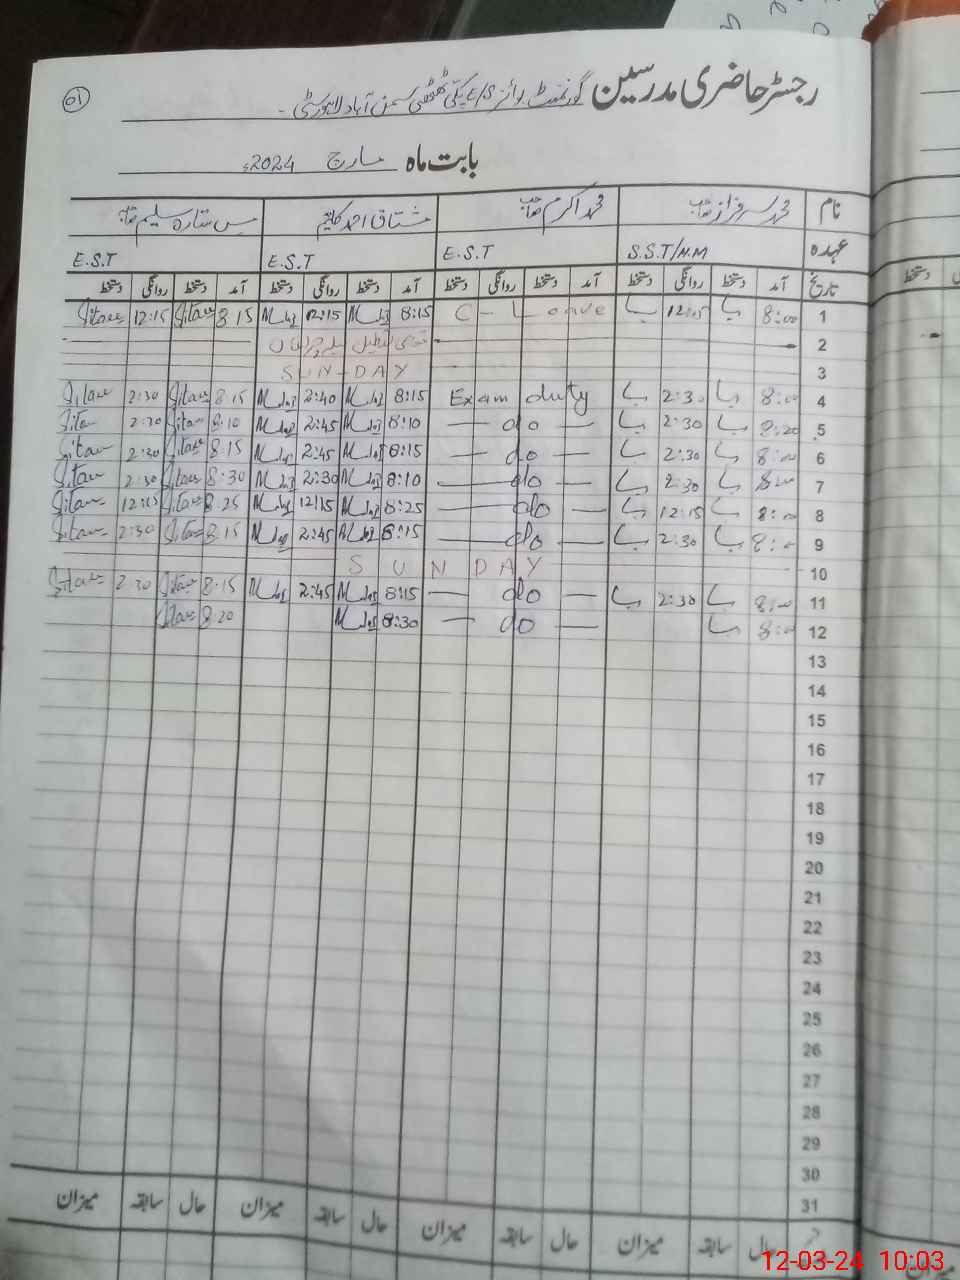 01
رجسٹر حاضری مدرسین گورنمنٹ بوائز E/S یکی ٹھٹھی سمن آباد لاہور سٹی۔
بابت ماہ مارچ 2024ء
نام محمد سرفراز صاحب محمد اکرم صاحب مشتاق احمد کلیم مس ستارہ سلیم صاحبہ
عہدہ S.S.T/H.M E.S.T E.S.T E.S.T
تاریخ آمد دستخط روانگی دستخط آمد دستخط روانگی دستخط آمد دستخط روانگی دستخط آمد دستخط روانگی دستخط
1 8:00 12:15 C - Leave 8:15 12:15 8:15 Sitara 12:15 Sitara
2 مقامی تعطیل میلہ چراغاں
3 SUN-DAY
4 8:00 2:30 Exam duty 8:15 2:40 8:15 Sitara 2:30 Sitara
5 8:20 2:30 — do — 8:10 2:45 8:10 Sitara Sitara
6 8:00 2:30 — do — 8:15 2:45 8:15 Sitara 2:30 Sitara
7 8:00 2:30 — do — 8:10 2:30 8:30 Sitara 2:30 Sitara
8 8:00 12:15 — do — 8:25 12:15 8:25 Sitara 12:15 Sitara
9 8:00 2:30 — do — 8:15 2:45 8:15 Sitara 2:30 Sitara
10 SUNDAY
11 8:00 2:30 — do — 8:15 2:45 8:15 Sitara 2:30 Sitara
12 8:00 — do — 8:30 8:20 Sitara
13
14
15
16
17
18
19
20
21
22
23
24
25
26
27
28
29
30
31
حال سابقہ میزان حال سابقہ میزان حال سابقہ میزان حال سابقہ میزان
12-03-24 10:03